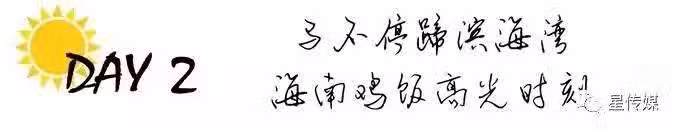 DAY 2
马不停蹄滨海湾
海南鸡饭高光时刻
星传媒